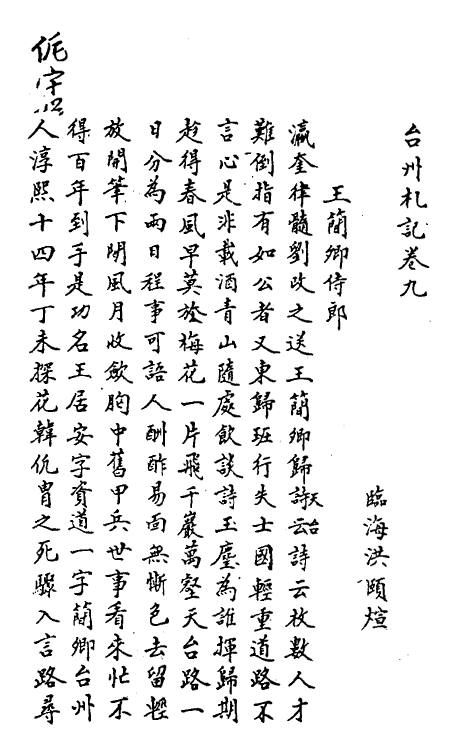 台州札記卷九
臨海洪頤煊
王簡卿侍郎
瀛奎律髓劉改之送王簡卿歸天台詩云詩云枚數人才
難倒指有如公者又東歸班行失士國輕重道路不
言心是非載酒青山隨處飲談詩玉麈為誰揮歸期
趁得春風早莫放梅花一片飛千巖萬壑天台路一
日分為兩日程事可語人酬酢易面無慚色去留輕
放開筆下閒風月收斂胸中舊甲兵世事看來忙不
得百年到手是功名王居安字資道一字簡卿台州
人淳熙十四年丁未探花韓侂胄之死驟入言路尋
侂字